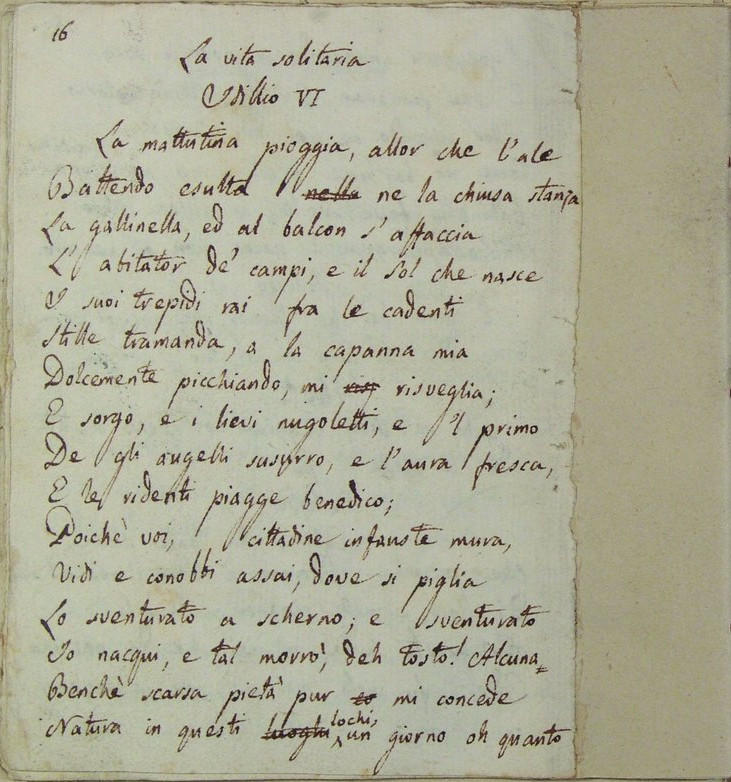 16
La vita solitaria
Idillio VI
La mattutina pioggia, allor che l'ale
Battendo esulta nella ne la chiusa stanza
La gallinella, ed al balcon s'affaccia
L'abitator de' campi, e il Sol che nasce
I suoi trepidi rai fra le cadenti
Stille tramanda, a la capanna mia
Dolcemente picchiando, mi risveglia;
E sorgo, e i lievi nugoletti, e 'l primo
De gli augelli susurro, e l'aura fresca,
E le ridenti piagge benedico;
Poichè voi, cittadine infauste mura,
Vidi e conobbi assai, dove si piglia
Lo sventurato a scherno; e sventurato
Io nacqui, e tal morrò, deh tosto! Alcuna
Benchè scarsa pietà pur mi concede
Natura in questi luoghi lochi, un giorno oh quanto